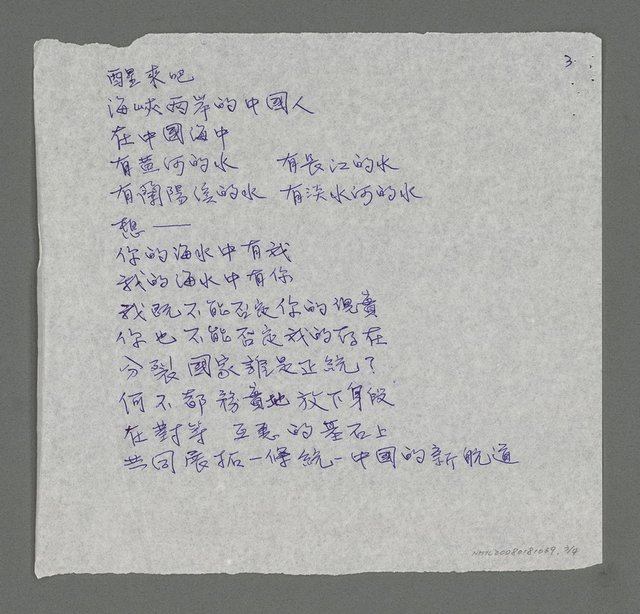 3.
醒來吧
海峽兩岸的中國人
在中國海中
有黃河的水　有長江的水
有蘭陽溪的水　有淡水河的水
想——
你的海水中有我
我的海水中有你
我既不能否定你的現實
你也不能否定我的存在
分裂國家誰是正統？
何不都務實地放下身段
在對等　互惠的基石上
共同展拓一條統一中國的新航道
NMTL20080181069, 3/4